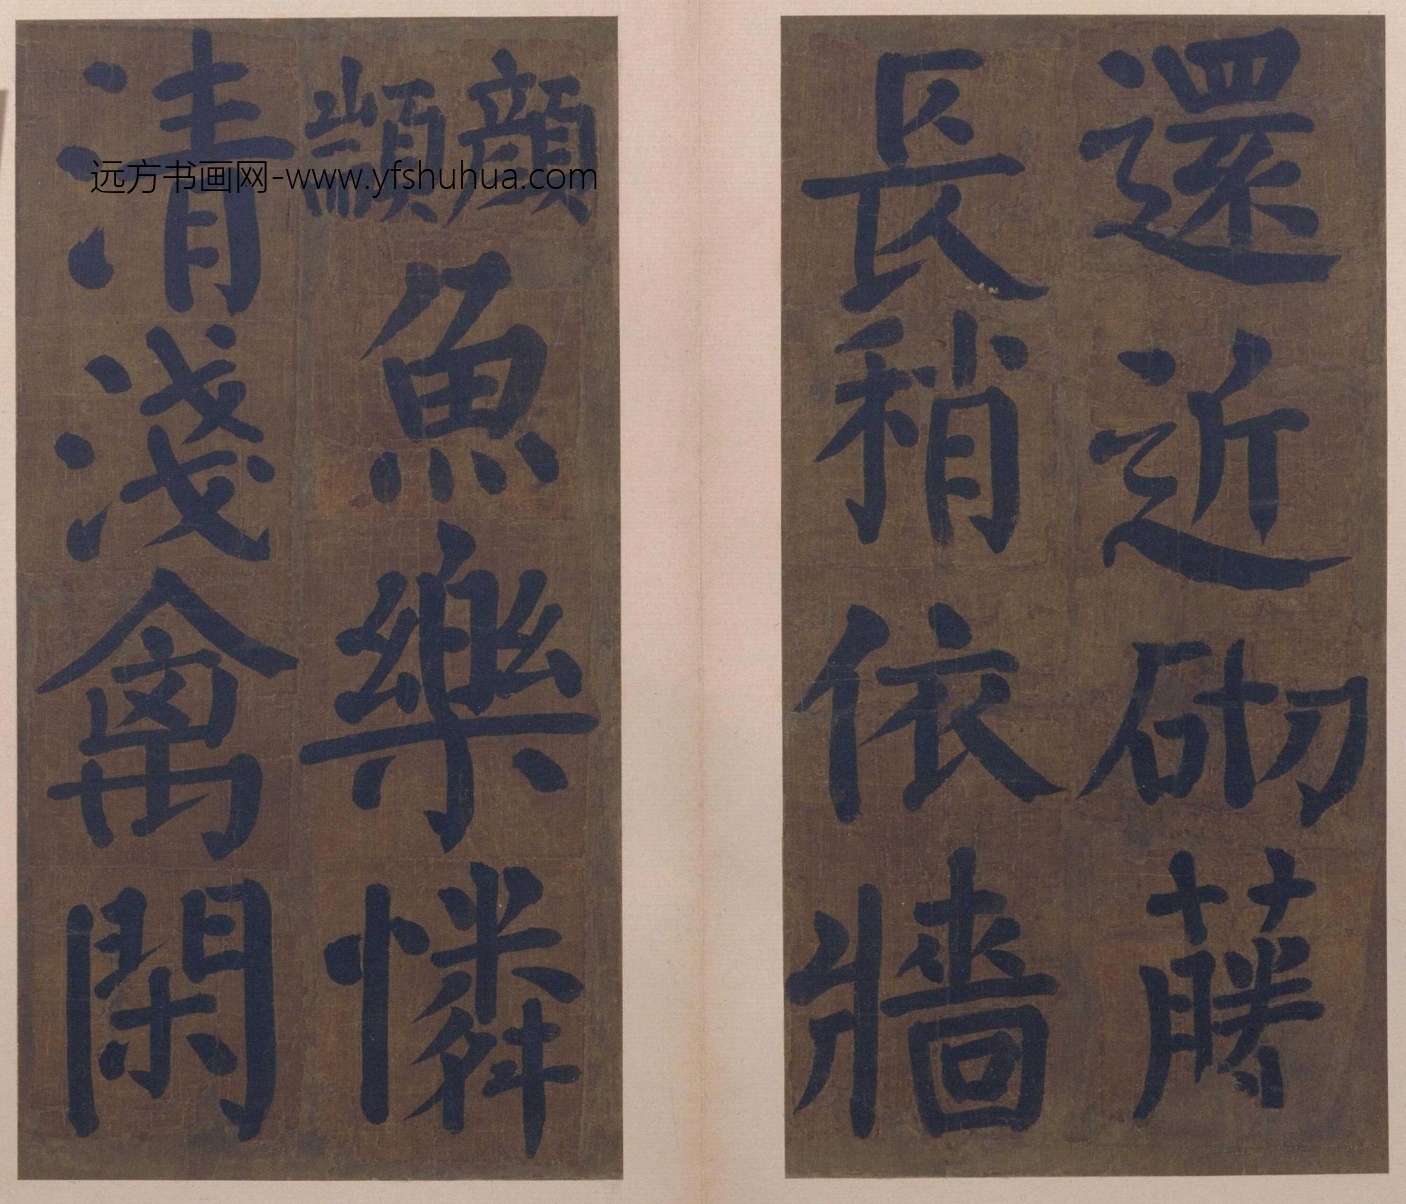 還近砌藤
長稍依牆
顔顓魚樂憐
清淺禽閑
远方书画网-www.yfshuhua.com